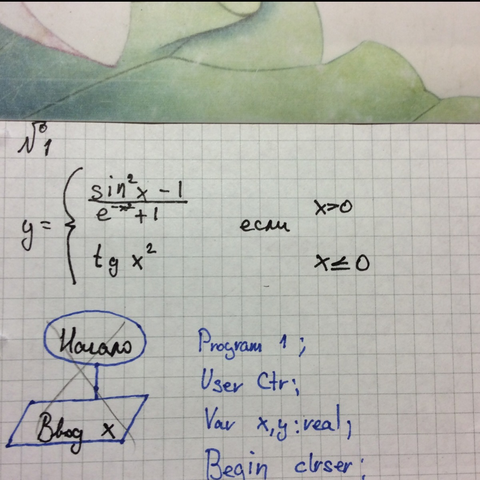 №1
y = { sin²x - 1 / e^-x² + 1
если x>0
tg x² x≤0
Начало
Ввод x
Program 1;
User Ctr;
Var x,y:real;
Begin clrser;